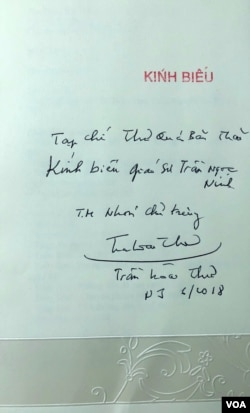 KINH BIẾU
Tạp chí Thư Quán Bản Thảo
Kính biếu giáo sư Trần Ngọc
Ninh
T.M Nhóm chủ trương
Trần Hoài Thư
NJ 6/2018
VOA